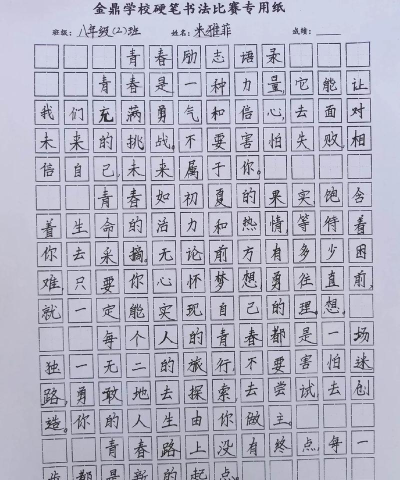 金鼎学校硬笔书法比赛专用纸
班级：八年级(2)班 姓名：朱雅菲 成绩：
青春励志语录
青春是一种力量，它能让
我们充满勇气和信心，去面对
未来的挑战。不要害怕失败，相
信自己，未来属于你。
青春如初夏的果实，饱含
着生命的活力和热情，等待着
你去采摘。无论前方有多少困
难，只要你心怀梦想，勇往直前，
就一定能实现自己的理想。
每个人的青春都是一场
独一无二的旅行，不要害怕迷
路，勇敢地去探索，去尝试，去创
造。你的人生由你做主。
青春路上没有终点，每一
步都是新的起点。